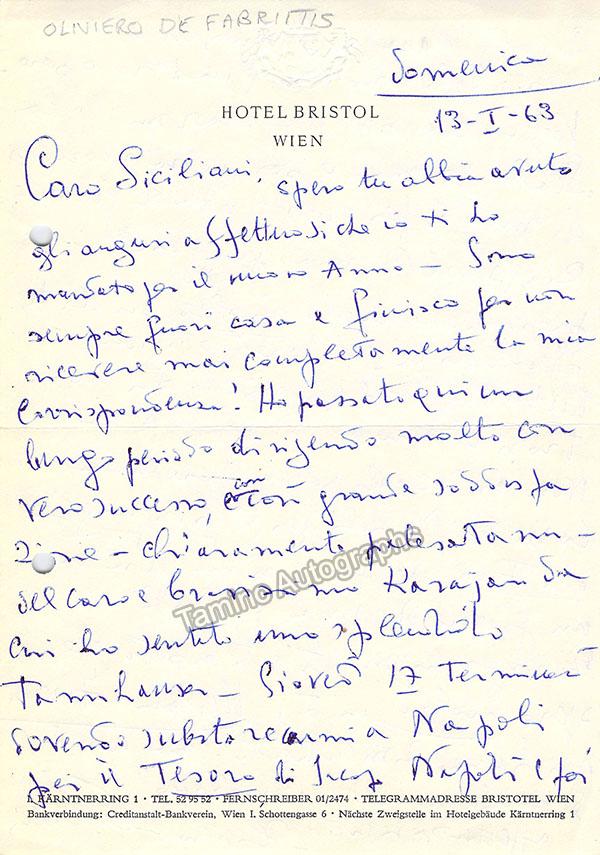 OLIVIERO DE FABRIITIS
Domenica
13-I-63
HOTEL BRISTOL
WIEN
Caro Siciliani, spero tu abbia avuto
gli auguri affettuosi che io ti ho
mandato per il nuovo Anno - Sono
sempre fuori casa e finisco per non
ricevere mai completamente la mia
corrispondenza! Ho passato qui un
lungo periodo dirigendo molto con
vero successo, e con con grande soddisfa
zione - chiaramente palesatami -
del caro e bravissimo Karajan da
cui ho sentito uno splendido
Tannhauser - Giovedì 17 terminerò
dovendo subito recarmi a Napoli
per il Tesoro di Napoli e poi
I. KÄRNTNERRING 1 · TEL. 52 95 52 · FERNSCHREIBER 01/2474 · TELEGRAMMADRESSE BRISTOTEL WIEN
Bankverbindung: Creditanstalt-Bankverein, Wien I. Schottengasse 6 · Nächste Zweigstelle im Hotelgebäude Kärntnerring 1
Tamino Autographs